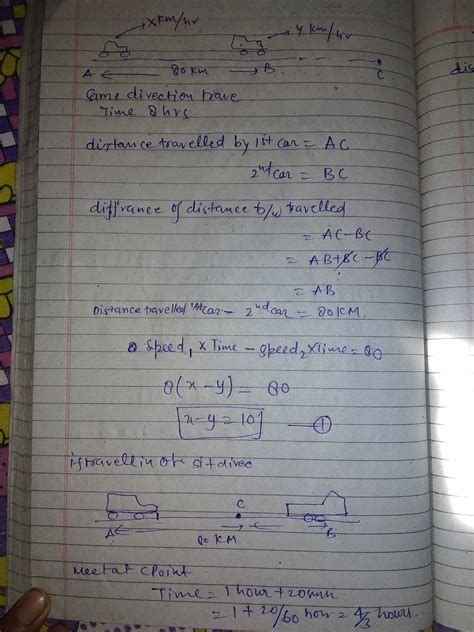 x km/hr
y km/hr
A 80 KM B C
Same direction trave
Time 8 hrs.
distance travelled by 1st car = AC
2nd car = BC
diffrance of distance b/w travelled
= AC-BC
= AB+BC-BC
= AB
Distance travelled 1st car - 2nd car = 80 KM.
Speed1 x Time - Speed2 x Time = 80
8(x-y) = 80
x-y = 10 ①
if travell in
C
A 80 KM B
Meet at C Point
Time = 1 hour + 20 min
= 1 + 20/60 hour = 4/3 hours.